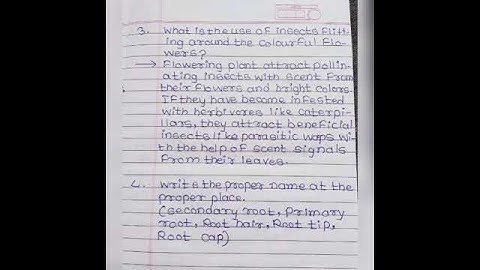 3. What is the use of insects flitt-
ing around the colourful flo-
wers?
→ Flowering plant attract pollin-
ating insects with scent from
their flowers and bright colors.
If they have become infested
with herbivores like caterpi-
llars, they attract beneficial
insects like parasitic waps wi-
th the help of scent signals
from their leaves.
4. Write the proper name at the
proper place.
(Secondary root, Primary
root, Root hair, Root tip,
Root cap)